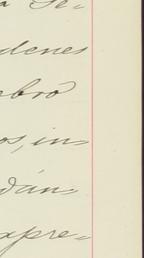 a Se-
denes
ebro
os, in-
dán-
xpre-